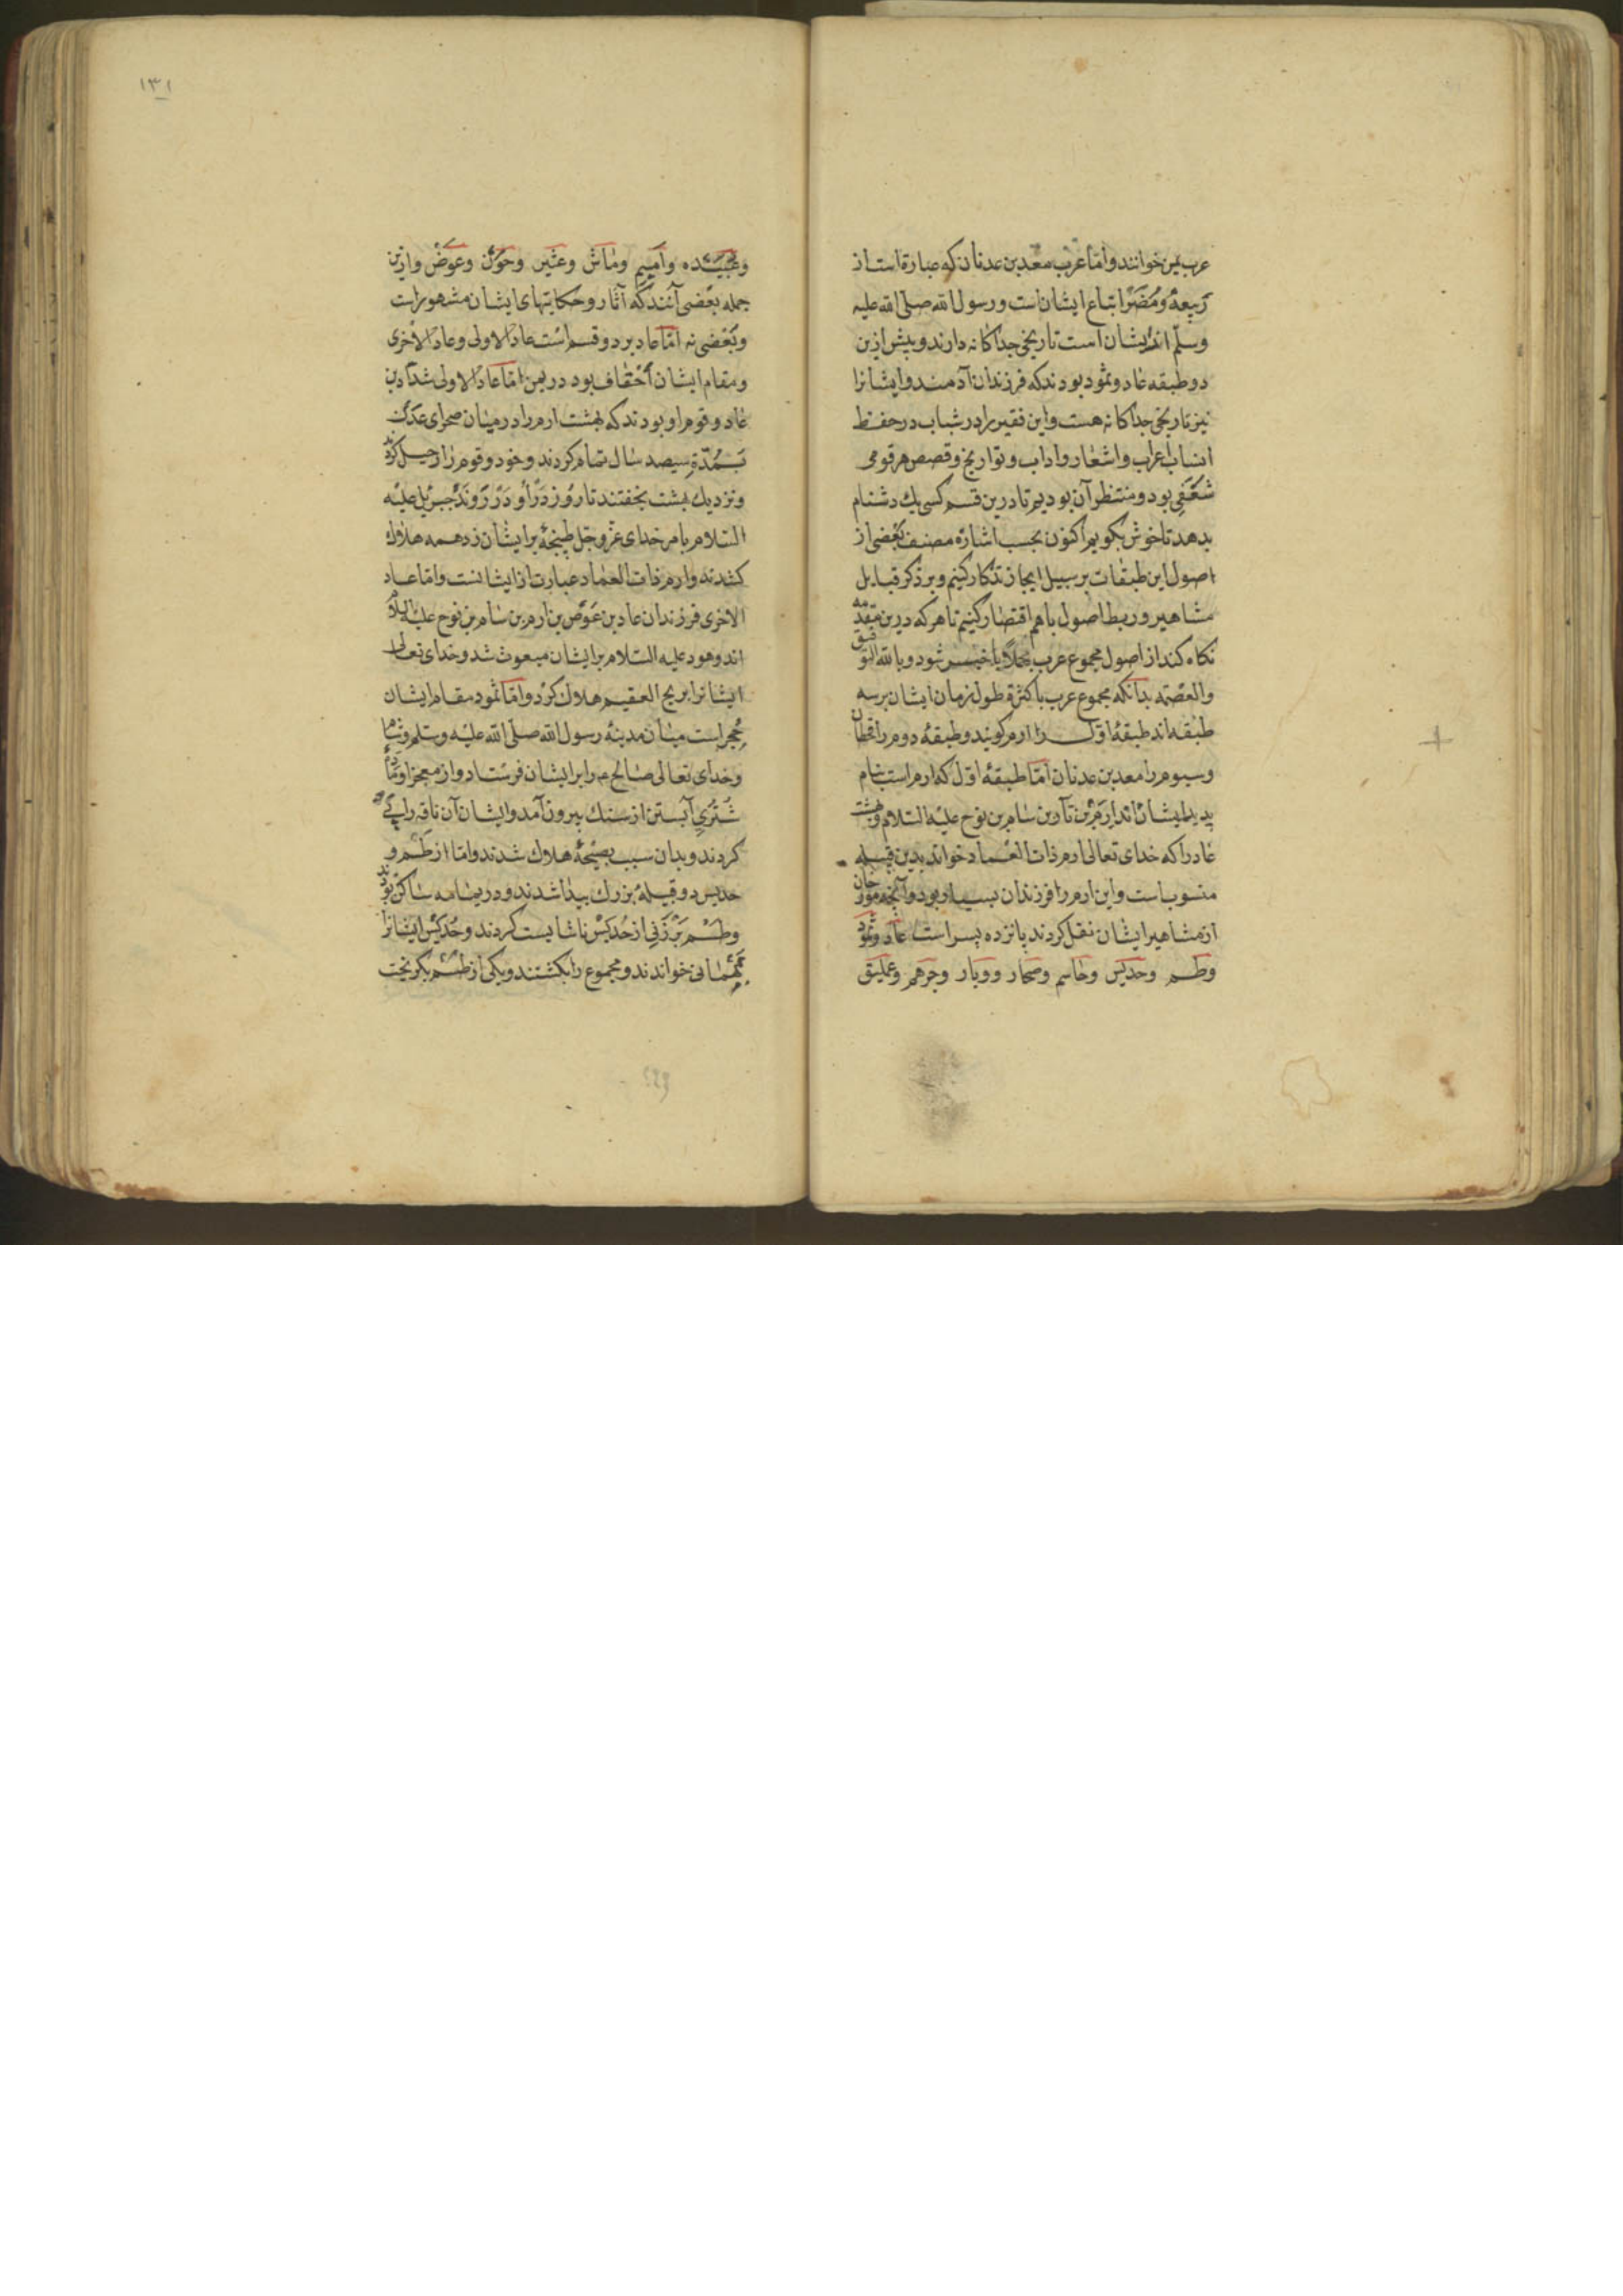 عرب یمن خوانند و امّا عرب معد بن عدنان که عبارة است از
ربیعه و مُضَر اتباع ایشان است و رسول الله صلی الله علیه
وسلّم از ایشان است تاریخی جداکانه دارند و پیش ازین
دو طبقه عاد و ثمود بودند که فرزندان آدمند و ایشانرا
نیز تاریخی جداکانه هست و این فقیر را در شباب در حفظ
انساب اعراب و اشعار و اداب و تواریخ و قصص هر قومی
شعفی بود و منتظر آن بودیم تا درین قسم کسی یك دشنام
بدهد تا خوش بکویم اکنون بحسب اشارة مصنف بعضی از
اصول این طبقات بر سبیل ایجاز تذکار کنیم و بر ذکر قبایل
مشاهیر و ربط اصول باهم اقتصار کنیم تا هر که درین مقدمه
نکاه کند از اصول مجموع عرب مجملا با خبر شود و بالله التوفیق
والعصمه بدانکه مجموع عرب با کثرة طول زمان ایشان بر سه
طبقه اند طبقهٔ اوّل را ارم کویند و طبقهٔ دوم را قحطان
و سیوم را معد بن عدنان امّا طبقهٔ اوّل که ارم است بنام
پدر ایشان اند ارم بن سام بن نوح علیه السلام و بهشت
عاد را که خدای تعالی ارم ذات العماد خواند بدین قبیله
منسوب است و این ارم را فرزندان بسیار بود و آنچه مورخان
از مشاهیر ایشان نقل کردند پانزده پسر است عاد و ثمود
وطسم وحدیس وجاسم وصحار ووبار وجرهم وعملیق
۱۳۱
وعبیده وامیم وماش وعثیر وحوّل وعوض وازین
جمله بعضی آنند که آثار و حکایتهای ایشان مشهور است
وبعضی نه امّا عاد بر دو قسم است عاد الاولی وعاد الاخری
ومقام ایشان احقاف بود در یمن امّا عاد الاولی شداد بن
عاد و قوم او بودند که بهشت ارم را در میان صحرای عدن
بمدّة سیصد سال تمام کردند و خود و قوم را رحیل کرد
ونزدیك بهشت بخفتند تا روز در او در روند جبریل علیه
السلام بامر خدای عزّ وجل طپنجهٔ بر ایشان زد همه هلاك
کشدند وارم ذات العماد عبارت از ایشانست وامّا عاد
الاخری فرزندان عاد بن عوض بن ارم بن سام بن نوح علیه السلام
اند وهود علیه السلام بر ایشان مبعوث شد وخدای تعالی
ایشانرا بریح العقیم هلاك کرد وامّا ثمود مقام ایشان
حجر است میان مدینهٔ رسول الله صلّی الله علیه وسلّم وشام
وخدای تعالی صالح را بر ایشان فرستاد واز معجز او
شتری آبستن از سنك بیرون آمد وایشان آن ناقه را پی
کردند وبدان سبب بصیحهٔ هلاك شدند وامّا از طسم و
حدیس دو قبیلهٔ بزرك پیدا شدند و در یمامه ساکن بودند
وطسم بر زنی از حدیس ناشایست کردند وحدیس ایشانرا
بمهمانی خواندند ومجموع را بکشتند ویکی از طسم بکریخت